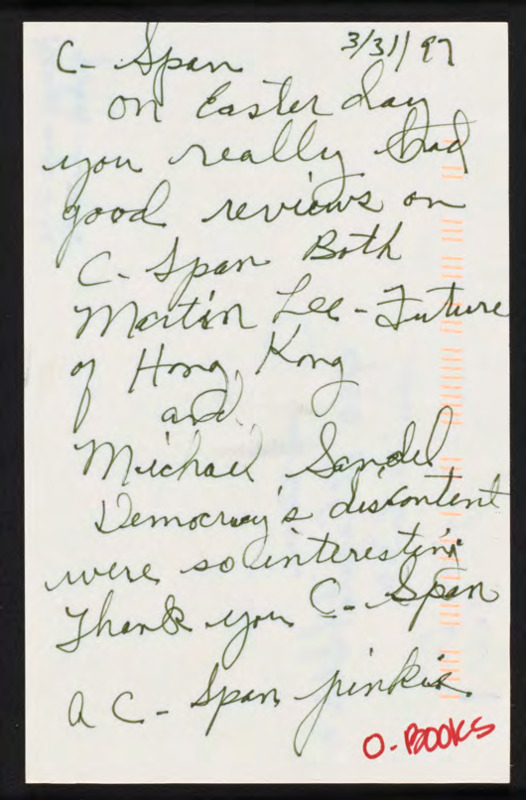 3/31/97
C- Span
on Easter day
you really had
good reviews on
C- Span Both
Martin Lee - Future
of Hong Kong
and
Michael Sandel
Democracy's discontent
were so interesting
Thank you C- Span
a C- Span
O-BOOKS